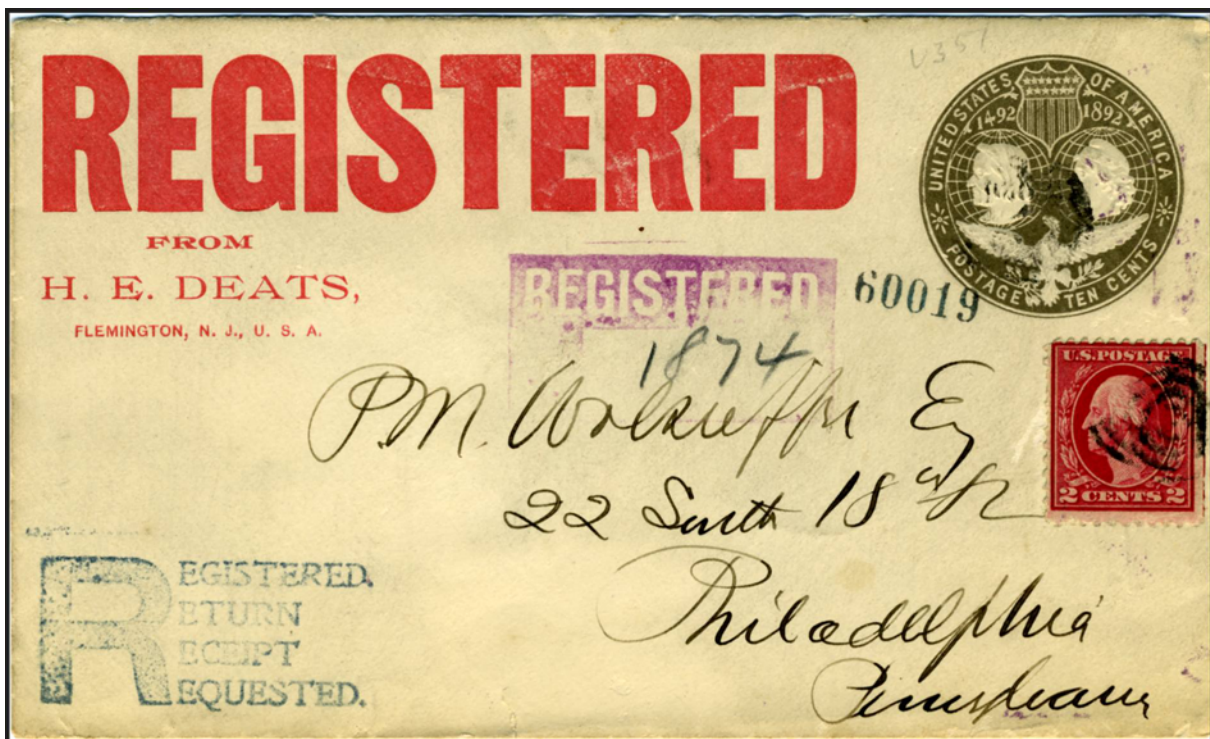 V351
REGISTERED
UNITED STATES OF AMERICA
1492 1892
POSTAGE TEN CENTS
FROM
H. E. DEATS,
FLEMINGTON, N. J., U. S. A.
REGISTERED
60019
1874
U.S. POSTAGE
2 CENTS 2
P. M. Wolsieffer Esq
22 South 18th St
Philadelphia
Pennsylvania
REGISTERED.
RETURN
RECEIPT
REQUESTED.